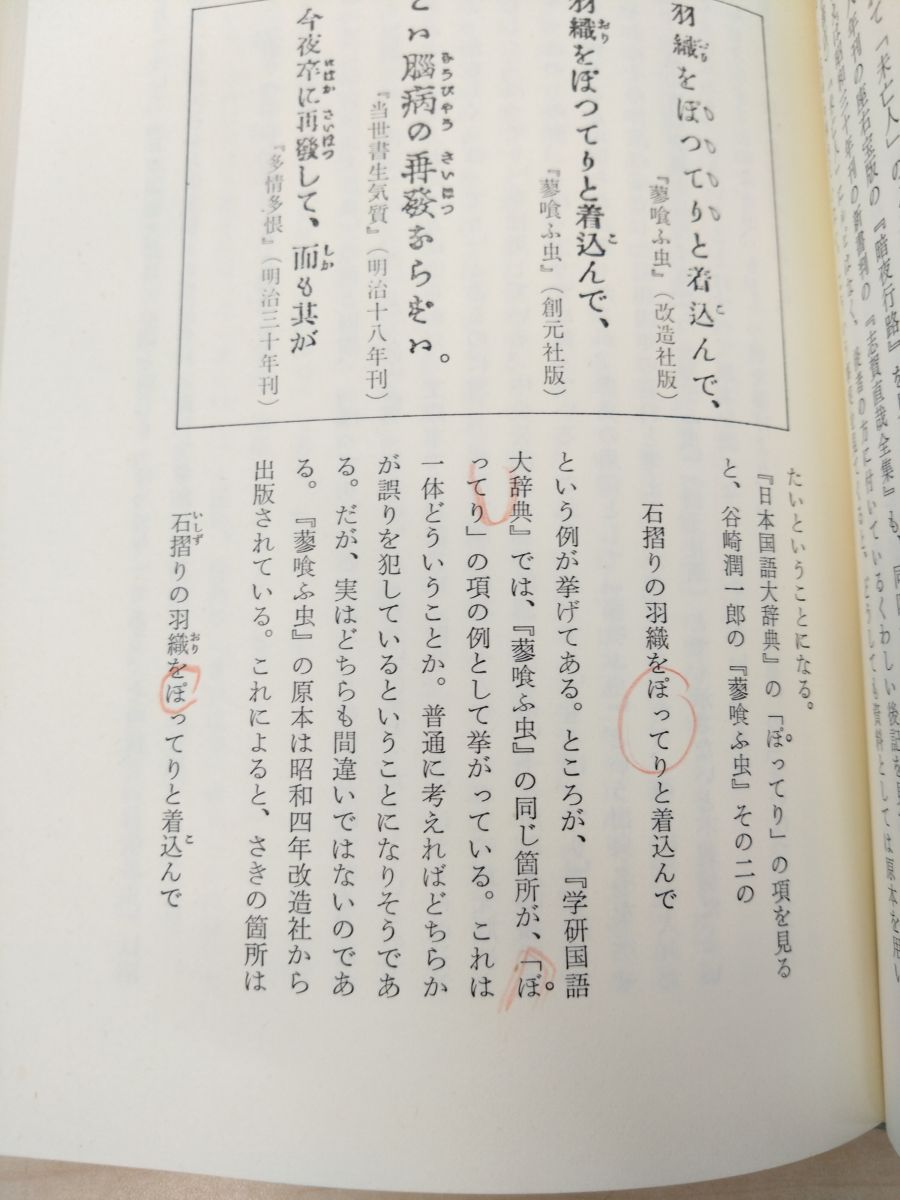 て「未亡人」の
年刊の座右宝版の『暗夜行路』を
年刊の新書判の『志賀直哉全集』も、同
後者の方に付いているくわしい後記を見
どうしても資料としては原本を用い
羽織をぽつてりと着込んで、
『蓼喰ふ虫』（改造社版）
羽織をぼつてりと着込んで、
『蓼喰ふ虫』（創元社版）
腦病の再發なら
『当世書生気質』（明治十八年刊）
今夜卒に再發して、而も其が
『多情多恨』（明治三十年刊）
たいということになる。
『日本国語大辞典』の「ぽってり」の項を見る
と、谷崎潤一郎の『蓼喰ふ虫』その二の
石摺りの羽織をぽってりと着込んで
という例が挙げてある。ところが、『学研国語
大辞典』では、『蓼喰ふ虫』の同じ箇所が、「ぼ
ってり」の項の例として挙がっている。これは
一体どういうことか。普通に考えればどちらか
が誤りを犯しているということになりそうであ
る。だが、実はどちらも間違いではないのであ
る。『蓼喰ふ虫』の原本は昭和四年改造社から
出版されている。これによると、さきの箇所は
石摺りの羽織をぽってりと着込んで